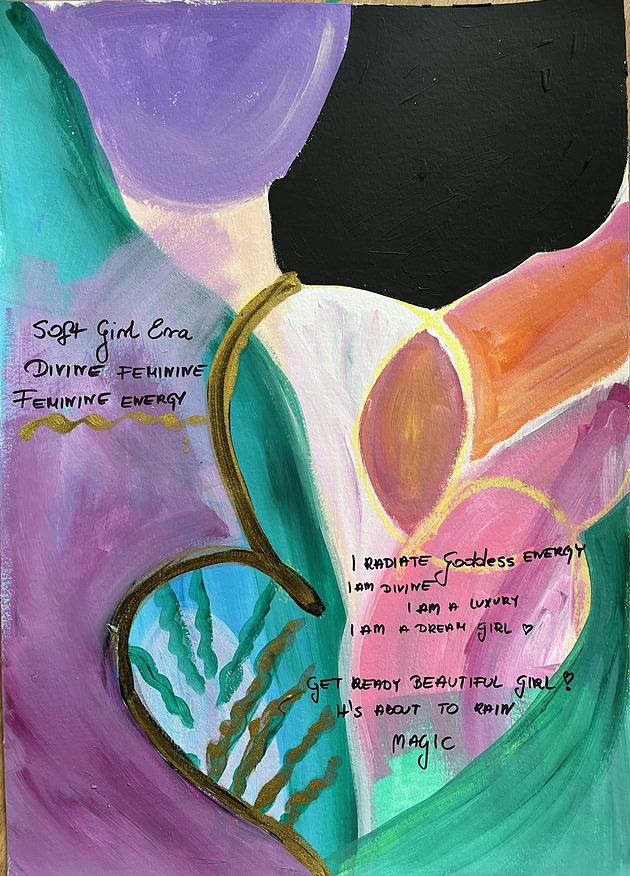 Soft Girl Era
DIVINE FEMININE
FEMININE ENERGY
I RADIATE Goddess ENERGY
I AM DIVINE
I AM A LUXURY
I AM A DREAM GIRL ♡
GET READY BEAUTIFUL GIRL!
It's ABOUT TO RAIN
MAGIC